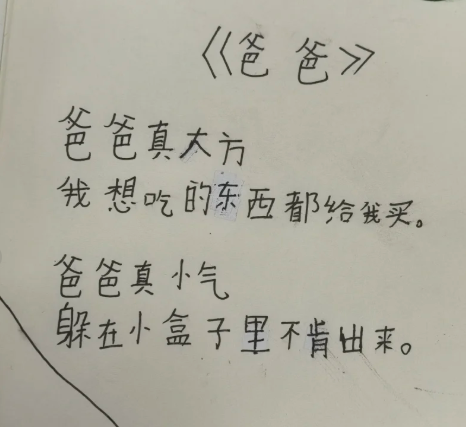 《爸爸》
爸爸真大方
我想吃的东西都给我买。
爸爸真小气
躲在小盒子里不肯出来。